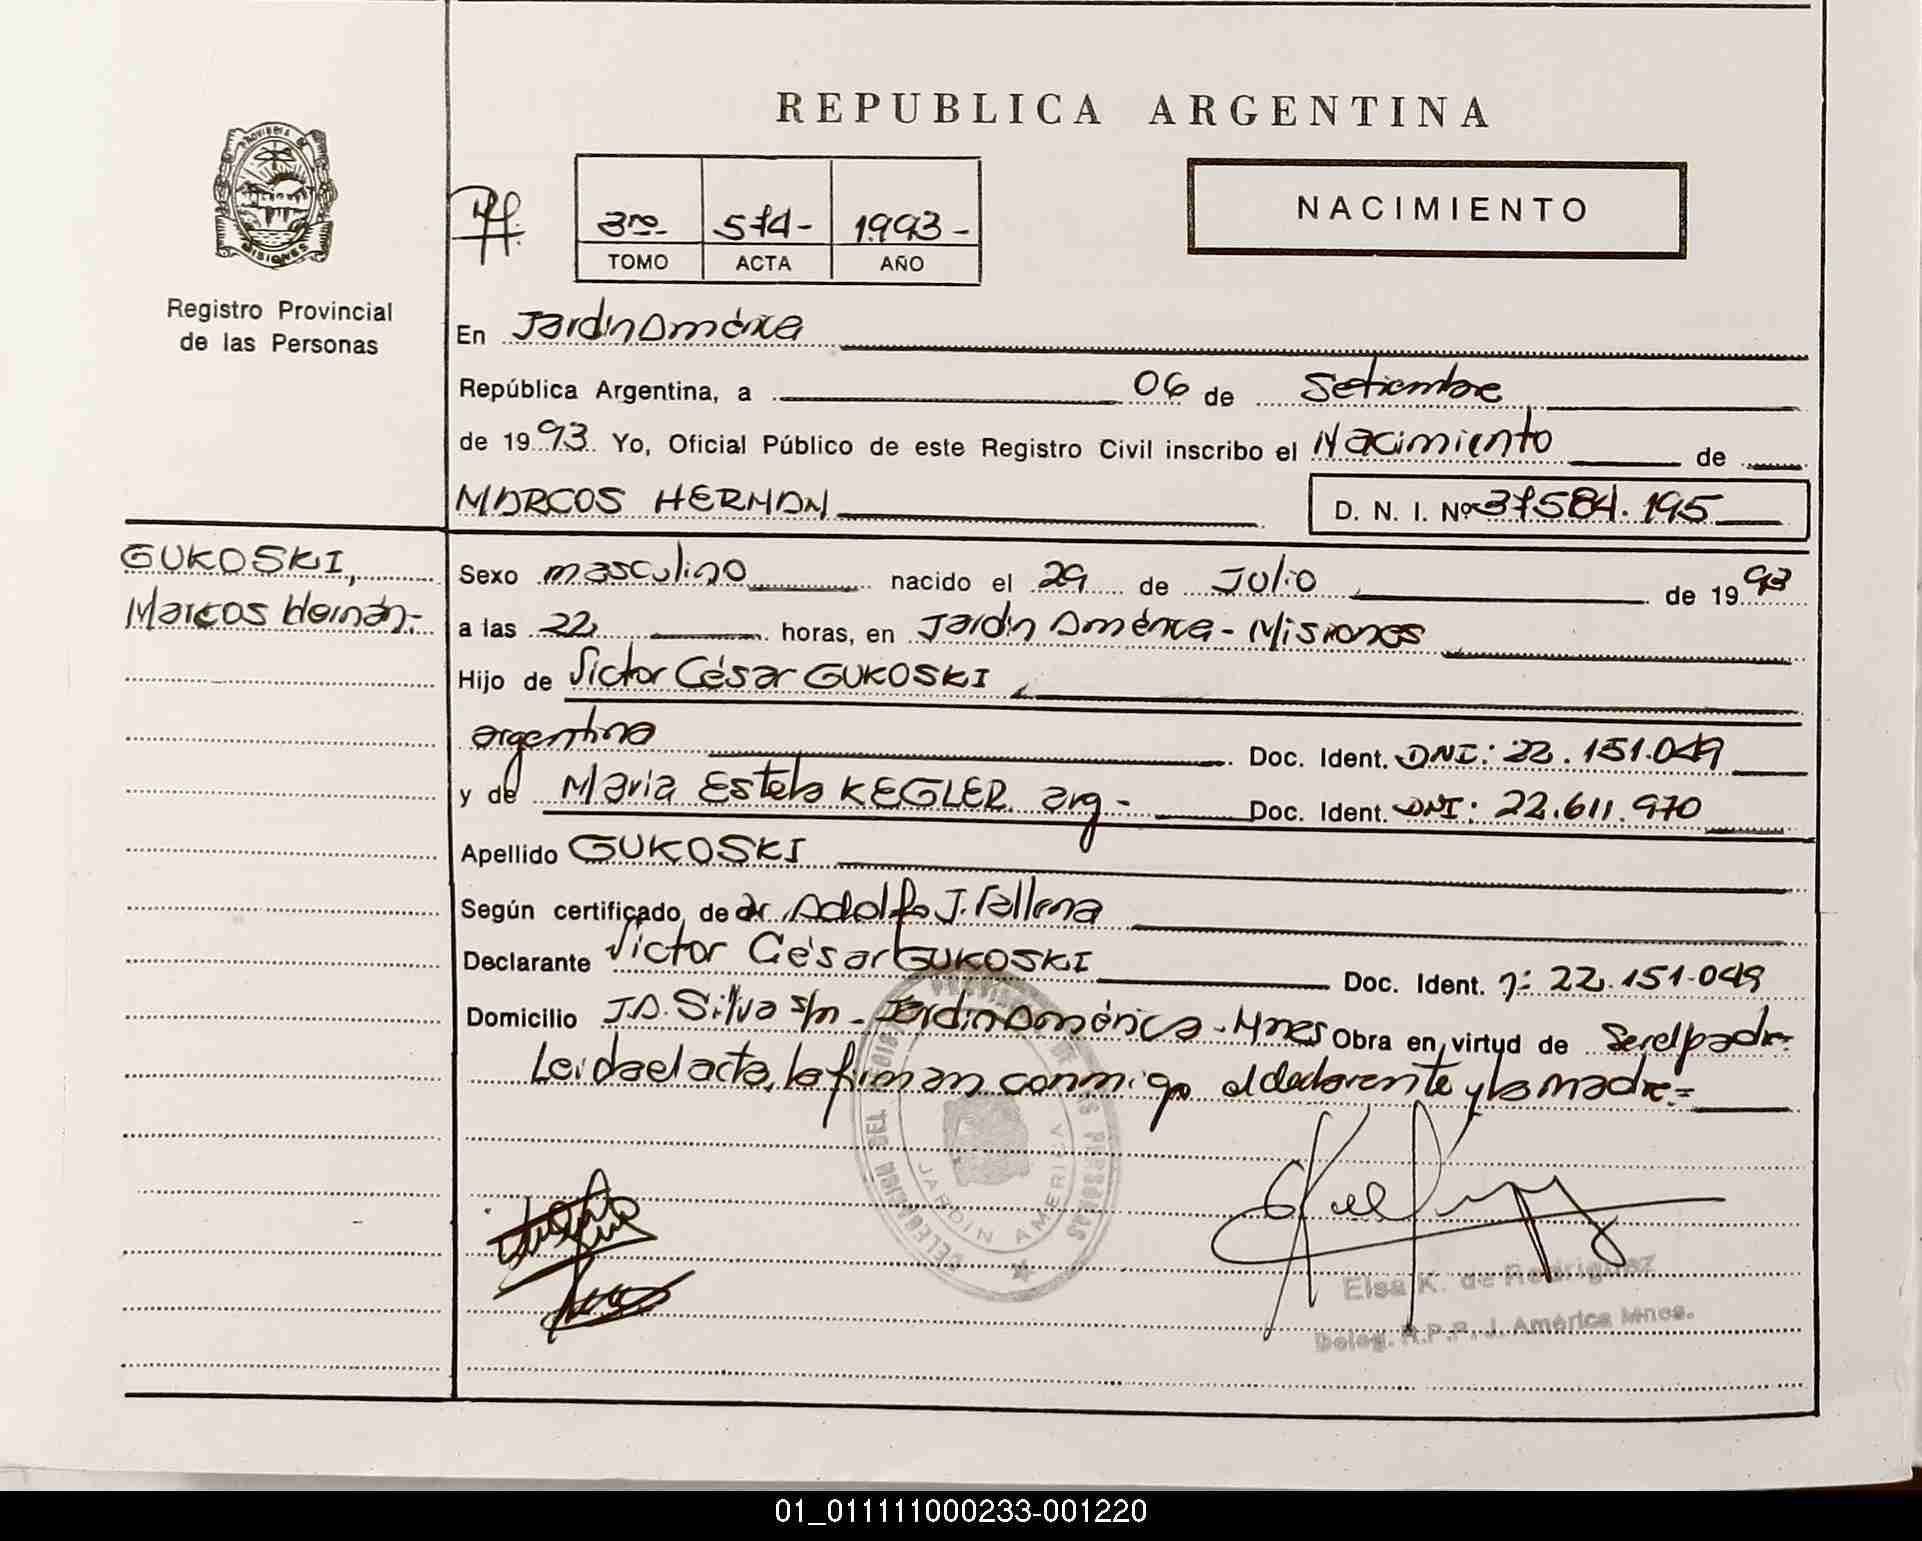 REPUBLICA ARGENTINA
PROVINCIA DE
MISIONES
Registro Provincial
de las Personas
3ro- 574- 1.993-
TOMO ACTA AÑO
NACIMIENTO
En Jardín América
República Argentina, a 06 de Setiembre
de 1993. Yo, Oficial Público de este Registro Civil inscribo el Nacimiento de
MARCOS HERNAN D. N. I. Nº 37584.195
GUKOSKI,
Marcos Hernán.-
Sexo masculino nacido el 29 de Julio de 1993
a las 22 horas, en Jardín América - Misiones
Hijo de Victor César GUKOSKI
argentina Doc. Ident. DNI: 22.151.049
y de Maria Estela KEGLER arg- Doc. Ident. DNI: 22.611.970
Apellido GUKOSKI
Según certificado de dr Adolfo J.
Declarante Victor César GUKOSKI Doc. Ident. 22.151.049
Domicilio J.D. Silva s/n - Jardín América - Mnes Obra en virtud de ser el padre-
Leida el acta, la firman conmigo el declarante y la madre.=
DELEGACION DEL REGISTRO PROVINCIAL DE LAS PERSONAS
JARDIN AMERICA
Elsa K. de Rodriguez
Deleg. R.P.P. J. América Mnes.
01_011111000233-001220